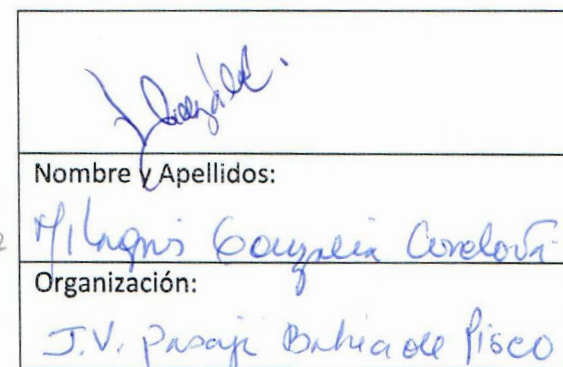 Nombre y Apellidos:
Milagros Gonzalez Cordova
Organización:
J.V. Pasaje Bahia de Pisco